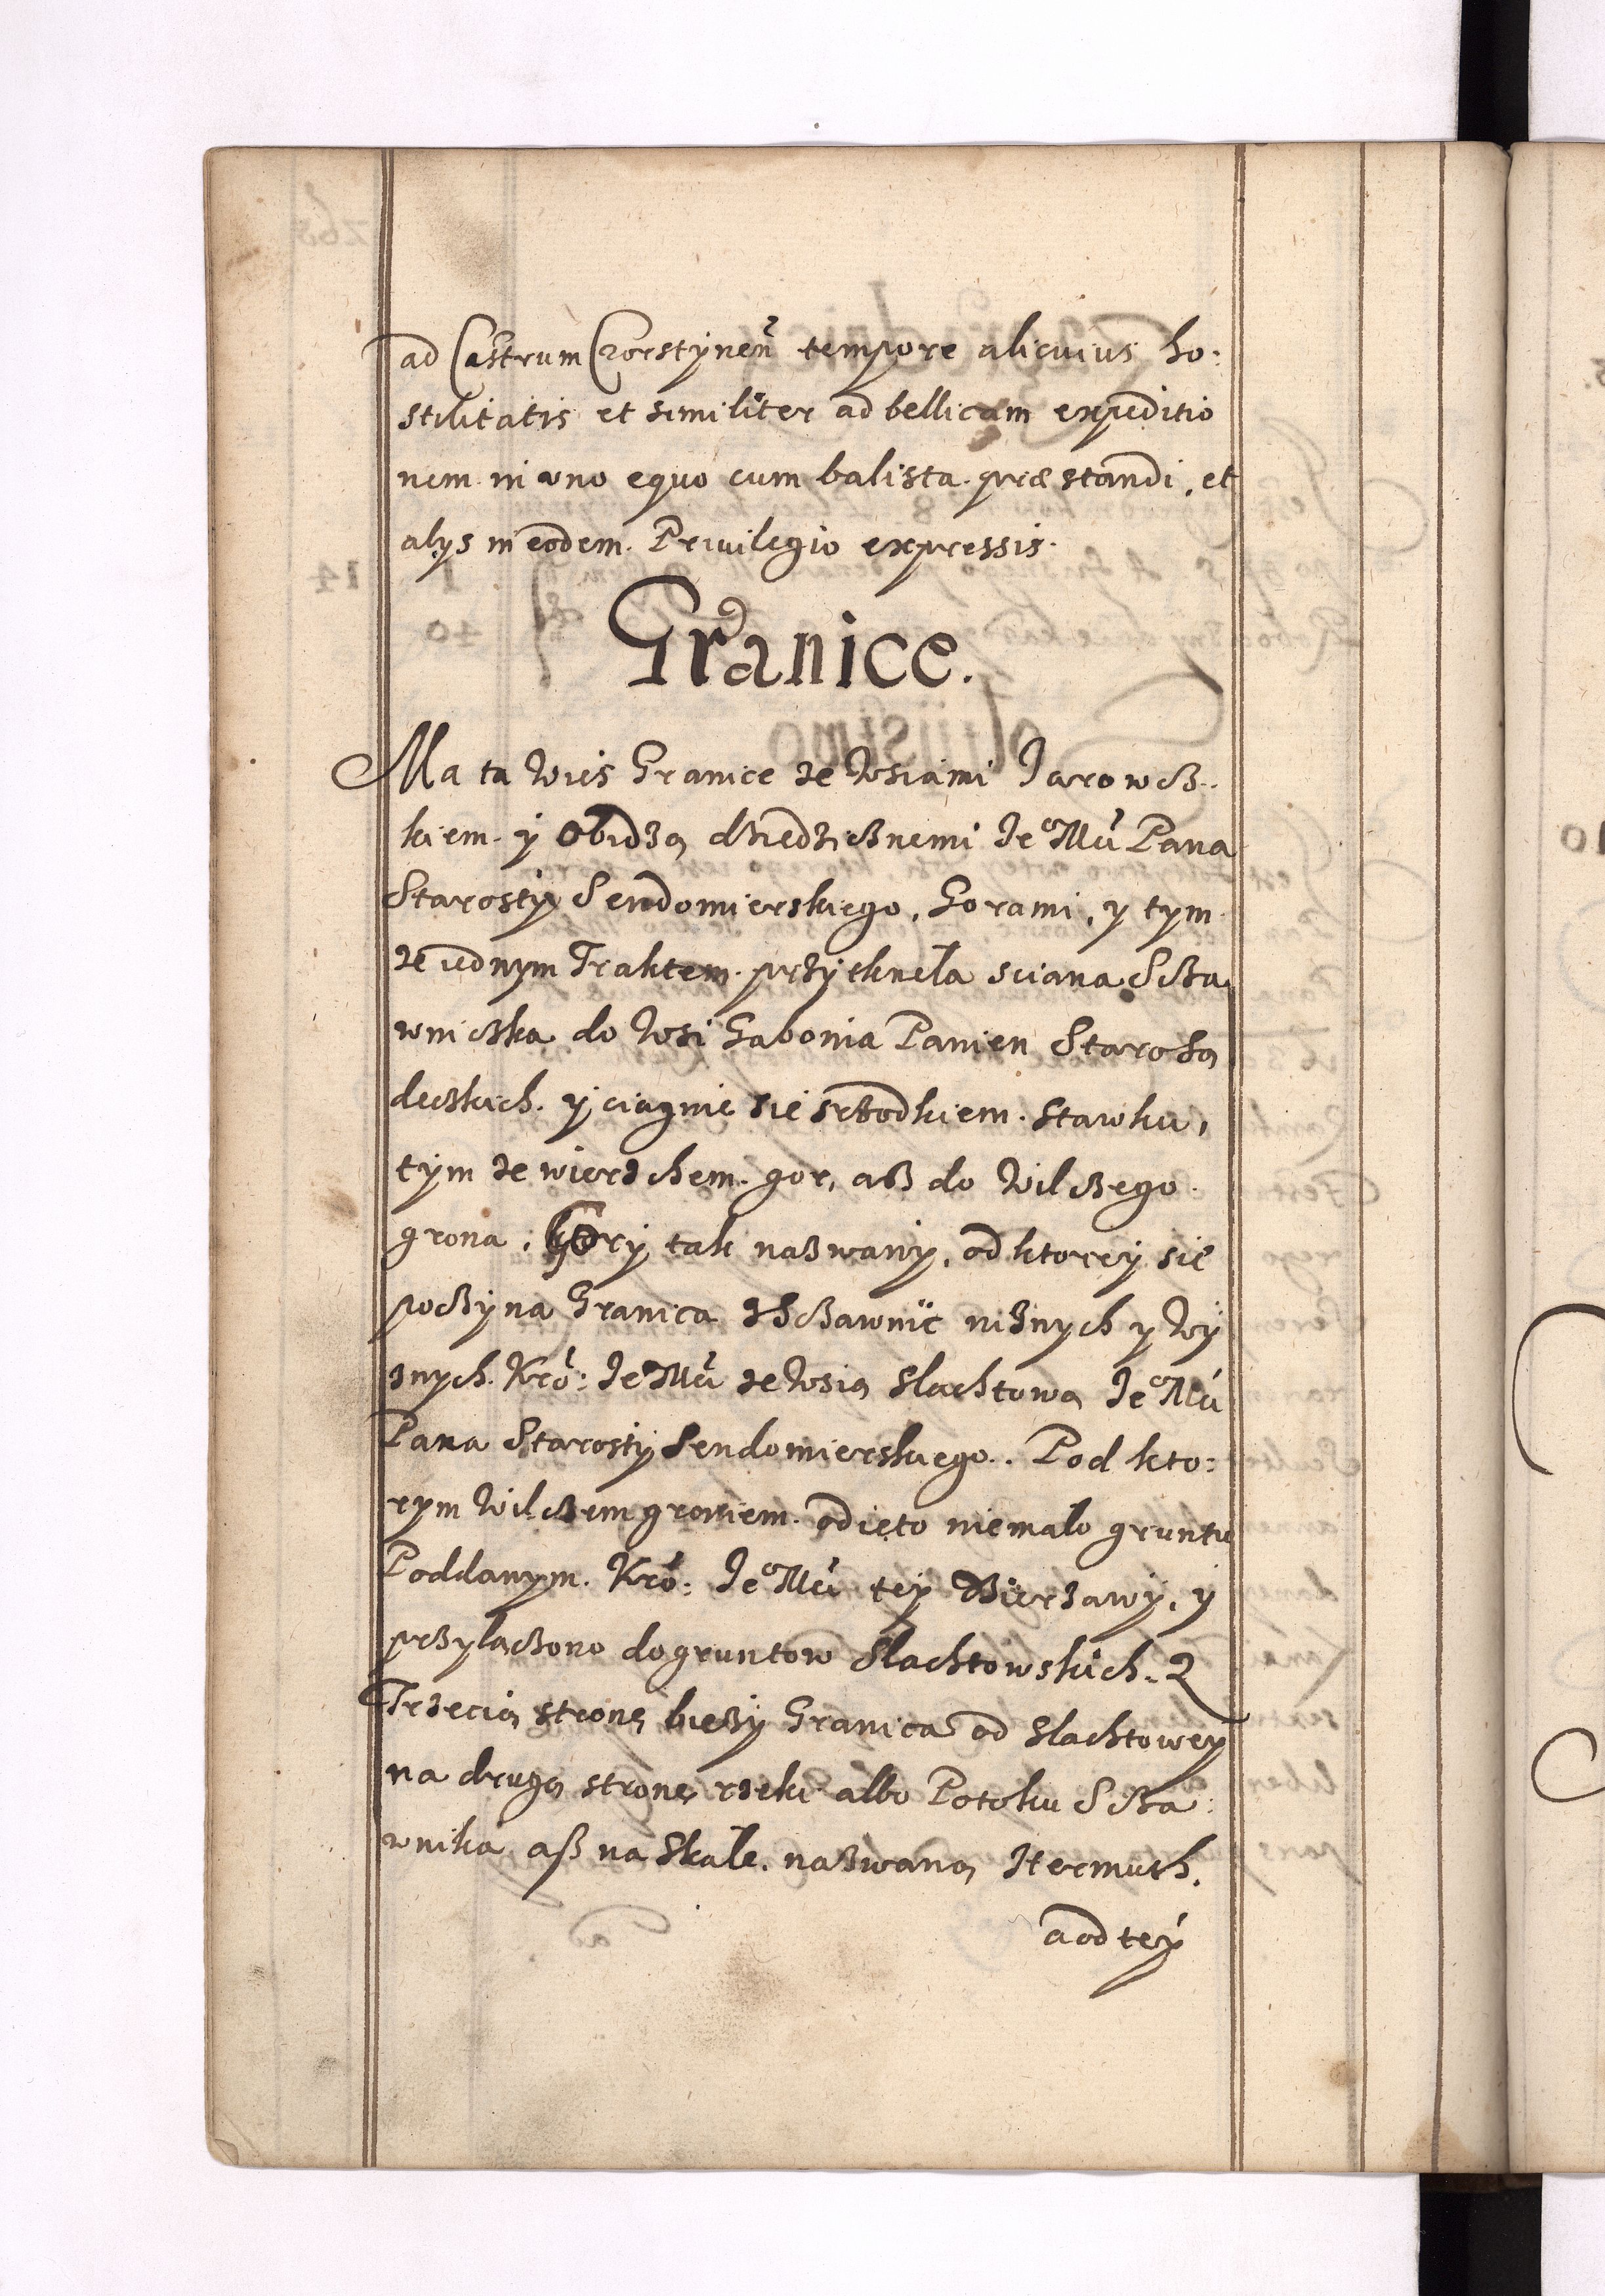 ad Castrum Czorstynen̄ tempore alicuius ho:
stilitatis et similiter ad bellicam expeditio
nem in uno equo cum balista præstandi, et
alijs in eodem Priuilegio expressis.
Granice.
Ma ta Wieś Granice ze Wsiami Jarowcz..
kiem y Obidzą dziedzicznemi JeoMći Pana
Starosty Sendomierskiego, Gorami, y tym
ze iednym Traktem przytknęła sciana Scza
wniczka do Wsi Gabonia Panien Starosą
deczkich. y ciągnie sie srzodkiem stawku,
tym ze wierzchem gor, asz do Wilczego
grona, Gory tak nazwany, od ktorey się
poczyna Granica Sczawnic niżnych y Wy
znych Kro: JeoMći ze Wsią Slachtową JeoMći
Pana Starosty Sendomierskiego. Pod kto:
rym Wilczem groniem odięto niemało gruntu
Poddanym Kro: JeoMći tey Dzierzawy, y
przyłączono do gruntow Slachtowskich. Z
Trzecią stronę bieży Granica od Slachtowey
na drugą stronę rzeki albo Potoku Scza:
wnika asz na Skałę nazwaną Htermuth.
a od tey